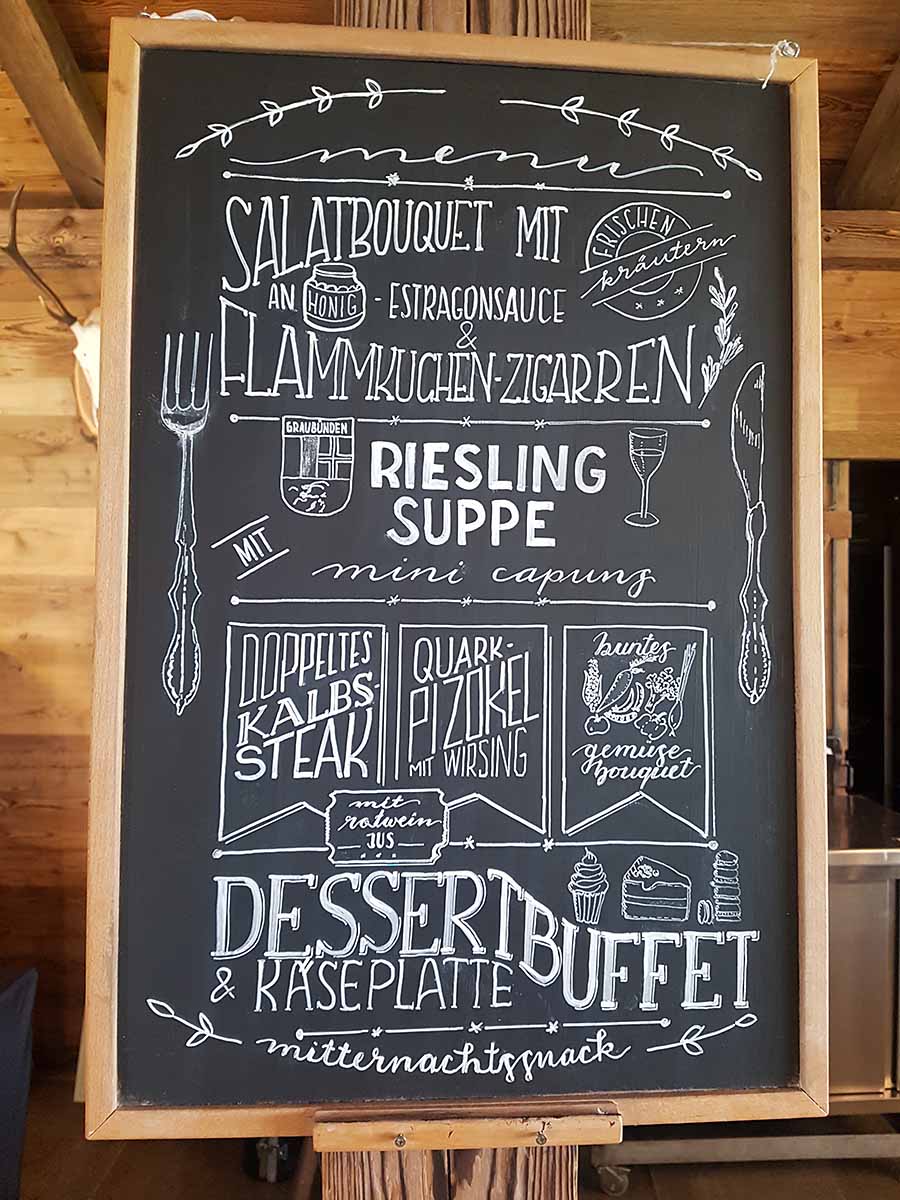 menu
SALATBOUQUET MIT FRISCHEN
kräutern
AN HONIG - ESTRAGONSAUCE
&
FLAMMKUCHEN-ZIGARREN
GRAUBÜNDEN
RIESLING
SUPPE
MIT
mini capuns
DOPPELTES
KALBS-
STEAK
QUARK-
PIZOKEL
MIT WIRSING
buntes
gemüse
bouquet
mit
rotwein
JUS
DESSERTBUFFET
& KÄSEPLATTE
mitternachtssnack